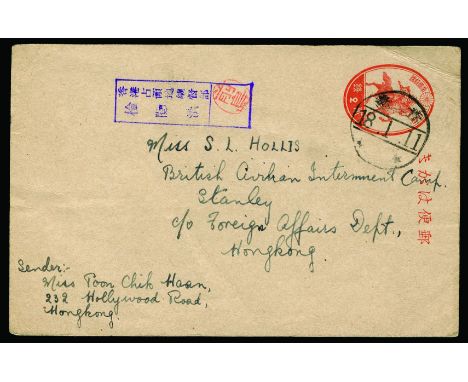 香港占領地總督部
検閲済
貳2銭
香港
18.1.11
Miss S. L. Hollis
British Civilian Internment Camp.
Stanley
c/o Foreign Affairs Dept.,
Hongkong.
郵便はがき
Sender:-
Miss Poon Chik Haan,
232 Hollywood Road,
Hongkong.